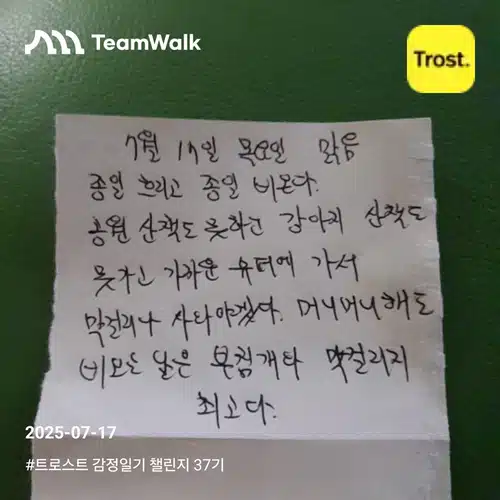 TeamWalk
Trost.
7월 17일 목요일 맑음
종일 흐리고 종일 비온다.
공원 산책도 못하고 강아지 산책도
못가고 가까운 슈터에 가서
막걸리나 사다야겠다. 머니머니해도
비오는 날은 부침개타 막걸리지
최고다.
2025-07-17
#트로스트 감정일기 챌린지 37기